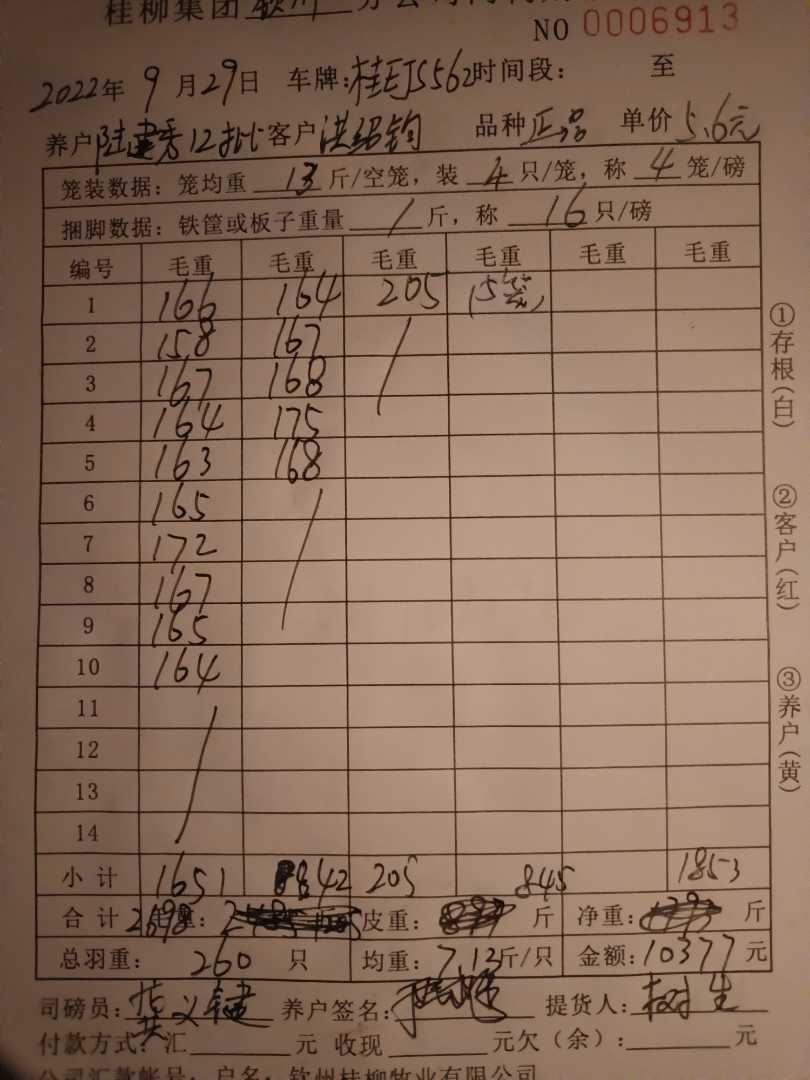 桂柳集团 钦州 分公司
NO 0006913
2022年 9月29日 车牌:桂EJ5562 时间段: 至
养户 陆建秀12批 客户 洪绍钧 品种 正品 单价 5.6元
笼装数据: 笼均重 13 斤/空笼, 装 4 只/笼, 称 4 笼/磅
捆脚数据: 铁筐或板子重量 1 斤, 称 16 只/磅
编号 毛重 毛重 毛重 毛重 毛重 毛重
1 166 164 205 (5笼)
2 158 167
3 167 168
4 164 175
5 163 168
6 165
7 172
8 167
9 165
10 164
11
12
13
14
小计 1651 842 205 845 1853
合计 2698 皮重: 斤 净重: 斤
总羽重: 260 只 均重: 7.13斤/只 金额: 10377 元
司磅员: 养户签名: 提货人: 树生
付款方式: 汇 元 收现 元 欠(余): 元
公司汇款帐号: 户名: 钦州桂柳牧业有限公司
①存根(白)
②客户(红)
③养户(黄)